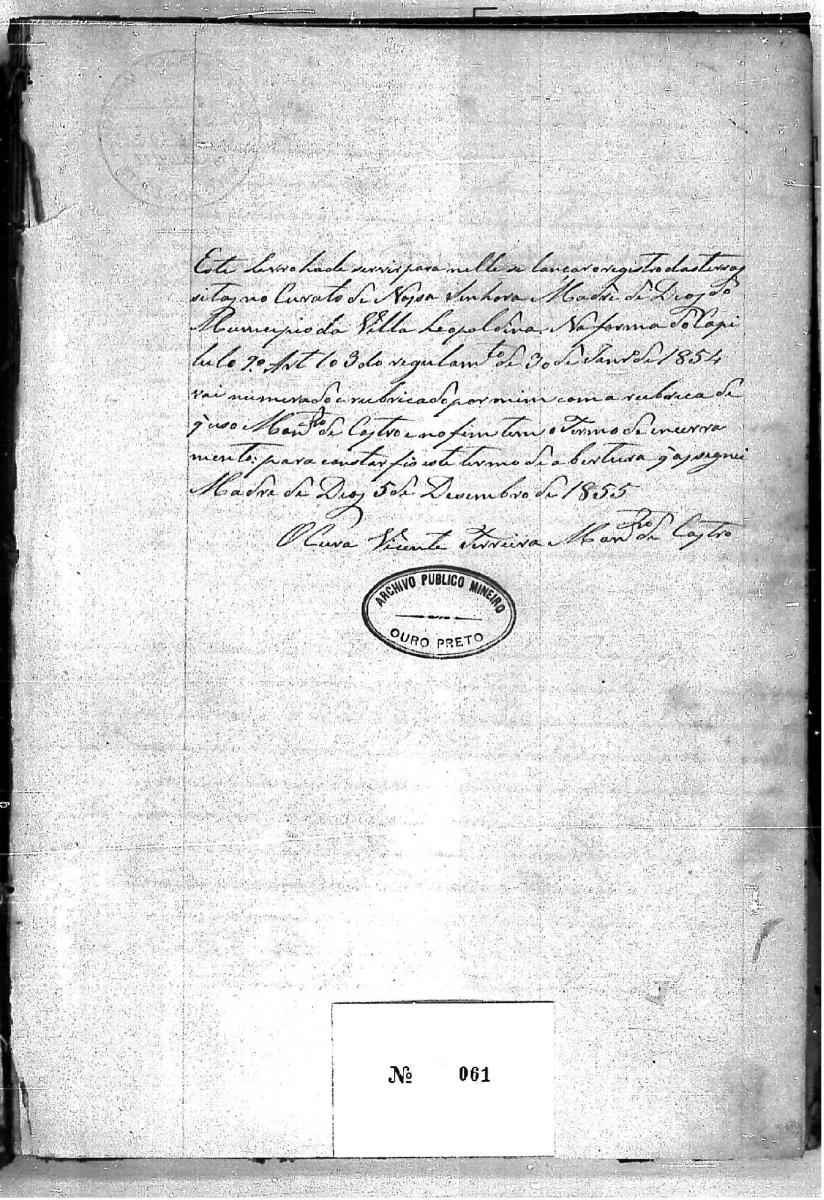 Este Livro ha de servir para nelle se lançar o registro das terras
sitas no Curato de Nossa Senhora Madre de Deos do
Municipio da Villa Leopoldina. Na forma do Capi
tulo 9º Art 103 do regulamto de 30 de Janrº de 1854
vai numerado e rubricado por mim com a rubrica de
q' uso Montrº de Castro e no fim tem o Termo de encerra
mento; para constar fis este termo de abertura q' assegnei
Madre de Deos 5 de Desembro de 1855
O Cura Vicente Ferreira Montrº de Castro
ARCHIVO PUBLICO MINEIRO
OURO PRETO
Nº 061